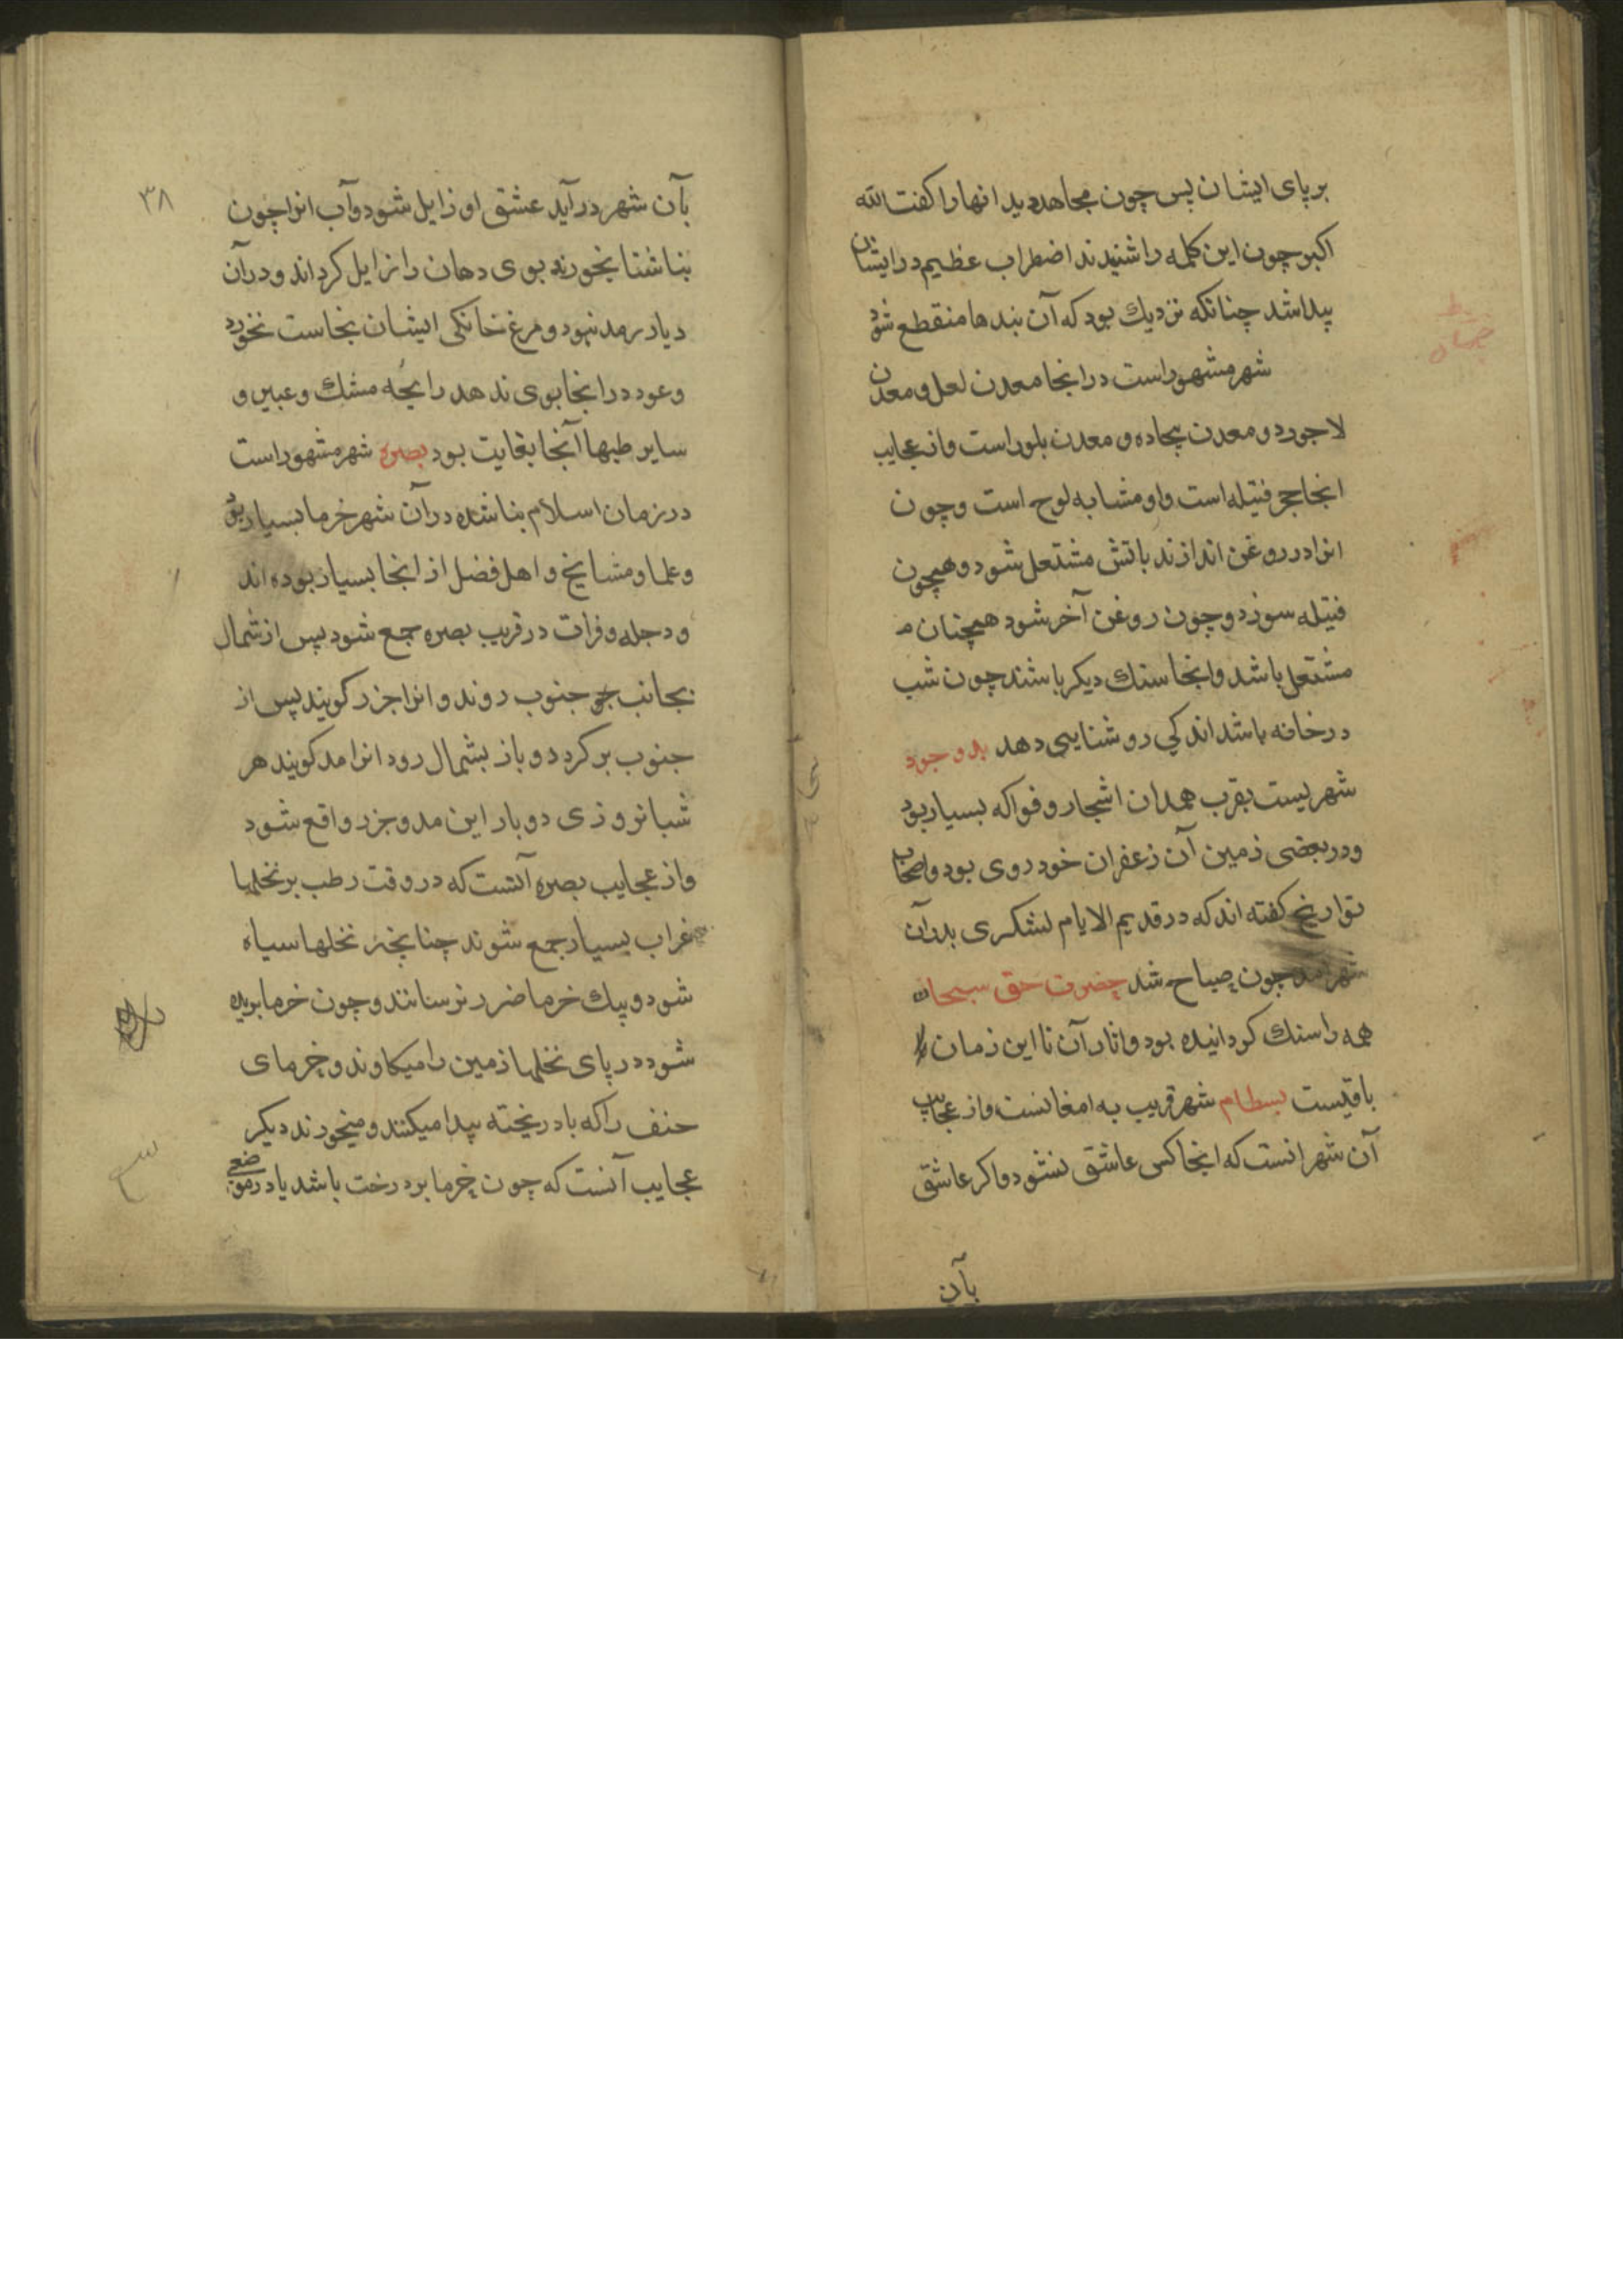 بر پای ایشان پس چون مجاهد دید انها را کفت الله
اکبر چون این کلمه را شنیدند اضطراب عظیم در ایشان
پیدا شد چنانکه نزدیك بود که آن بندها منقطع شود
شهر مشهور است در اینجا معدن لعل و معدن
لاجورد و معدن بیجاده و معدن بلور است و از عجایب
انجا حجر فتیله است و او مشابه لوح است و چون
انرا در روغن اندازند باتش مشتعل شود و همچون
فتیله سوزد و چون روغن آخر شود همچنان
مشتعل باشد وانجا سنك دیکر باشند چون شب
در خانه باشد اندکی روشنایی دهد بدوجود
شهریست بقرب همدان اشجار و فواکه بسیار بود
ودر بعضی زمین آن زعفران خود روی بود واصحاب
تواریخ کفته اند که در قدیم الایام لشکری بدان
شهر آمد چون صباح شد حضرت حق سبحانه
همه را سنك کردانیده بود واثار آن تا این زمان
باقیست بسطام شهر قریب به امغانست واز عجایب
آن شهر انست که اینجا کس عاشق نشود واکر عاشق
بآن
۳۸
بآن شهر در آید عشق او زایل شود وآب انرا چون
بناشتا بخورند بوی دهان را زایل کرداند ودر آن
دیار رمد نبود و مرغ خانکی ایشان نجاست نخورد
وعود در انجا بوی ندهد رایحه مشك وعبیر و
سایر طیبها آنجا بغایت بود بصره شهر مشهور است
در زمان اسلام بنا شده در آن شهر خرما بسیار بود
وعلما ومشایخ و اهل فضل از انجا بسیار بوده اند
ودجله و فرات در قریب بصره جمع شود پس از شمال
بجانب جنوب روند و انرا جزر کویند پس از
جنوب بر کردد و باز بشمال رود انرا مد کویند هر
شبانروزی دو بار این مد وجزر واقع شود
واز عجایب بصره آنست که در وقت رطب بر نخلها
غراب بسیار جمع شوند چنانچه نخلها سیاه
شود و بیك خرما ضرر نرسانند وچون خرما بریده
شود در پای نخلها زمین را میکاوند و خرمای
حنف را که باد ریخته پیدا میکنند و میخورند دیکر
عجایب آنست که چون خرما بر درخت باشد یا در موضعی